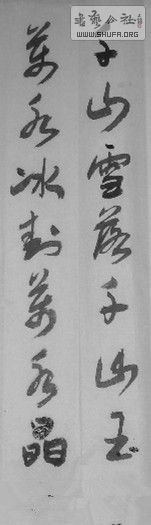 千山雪落千山玉
万水冰封万水晶
書藝公社
WWW.SHUFA.ORG